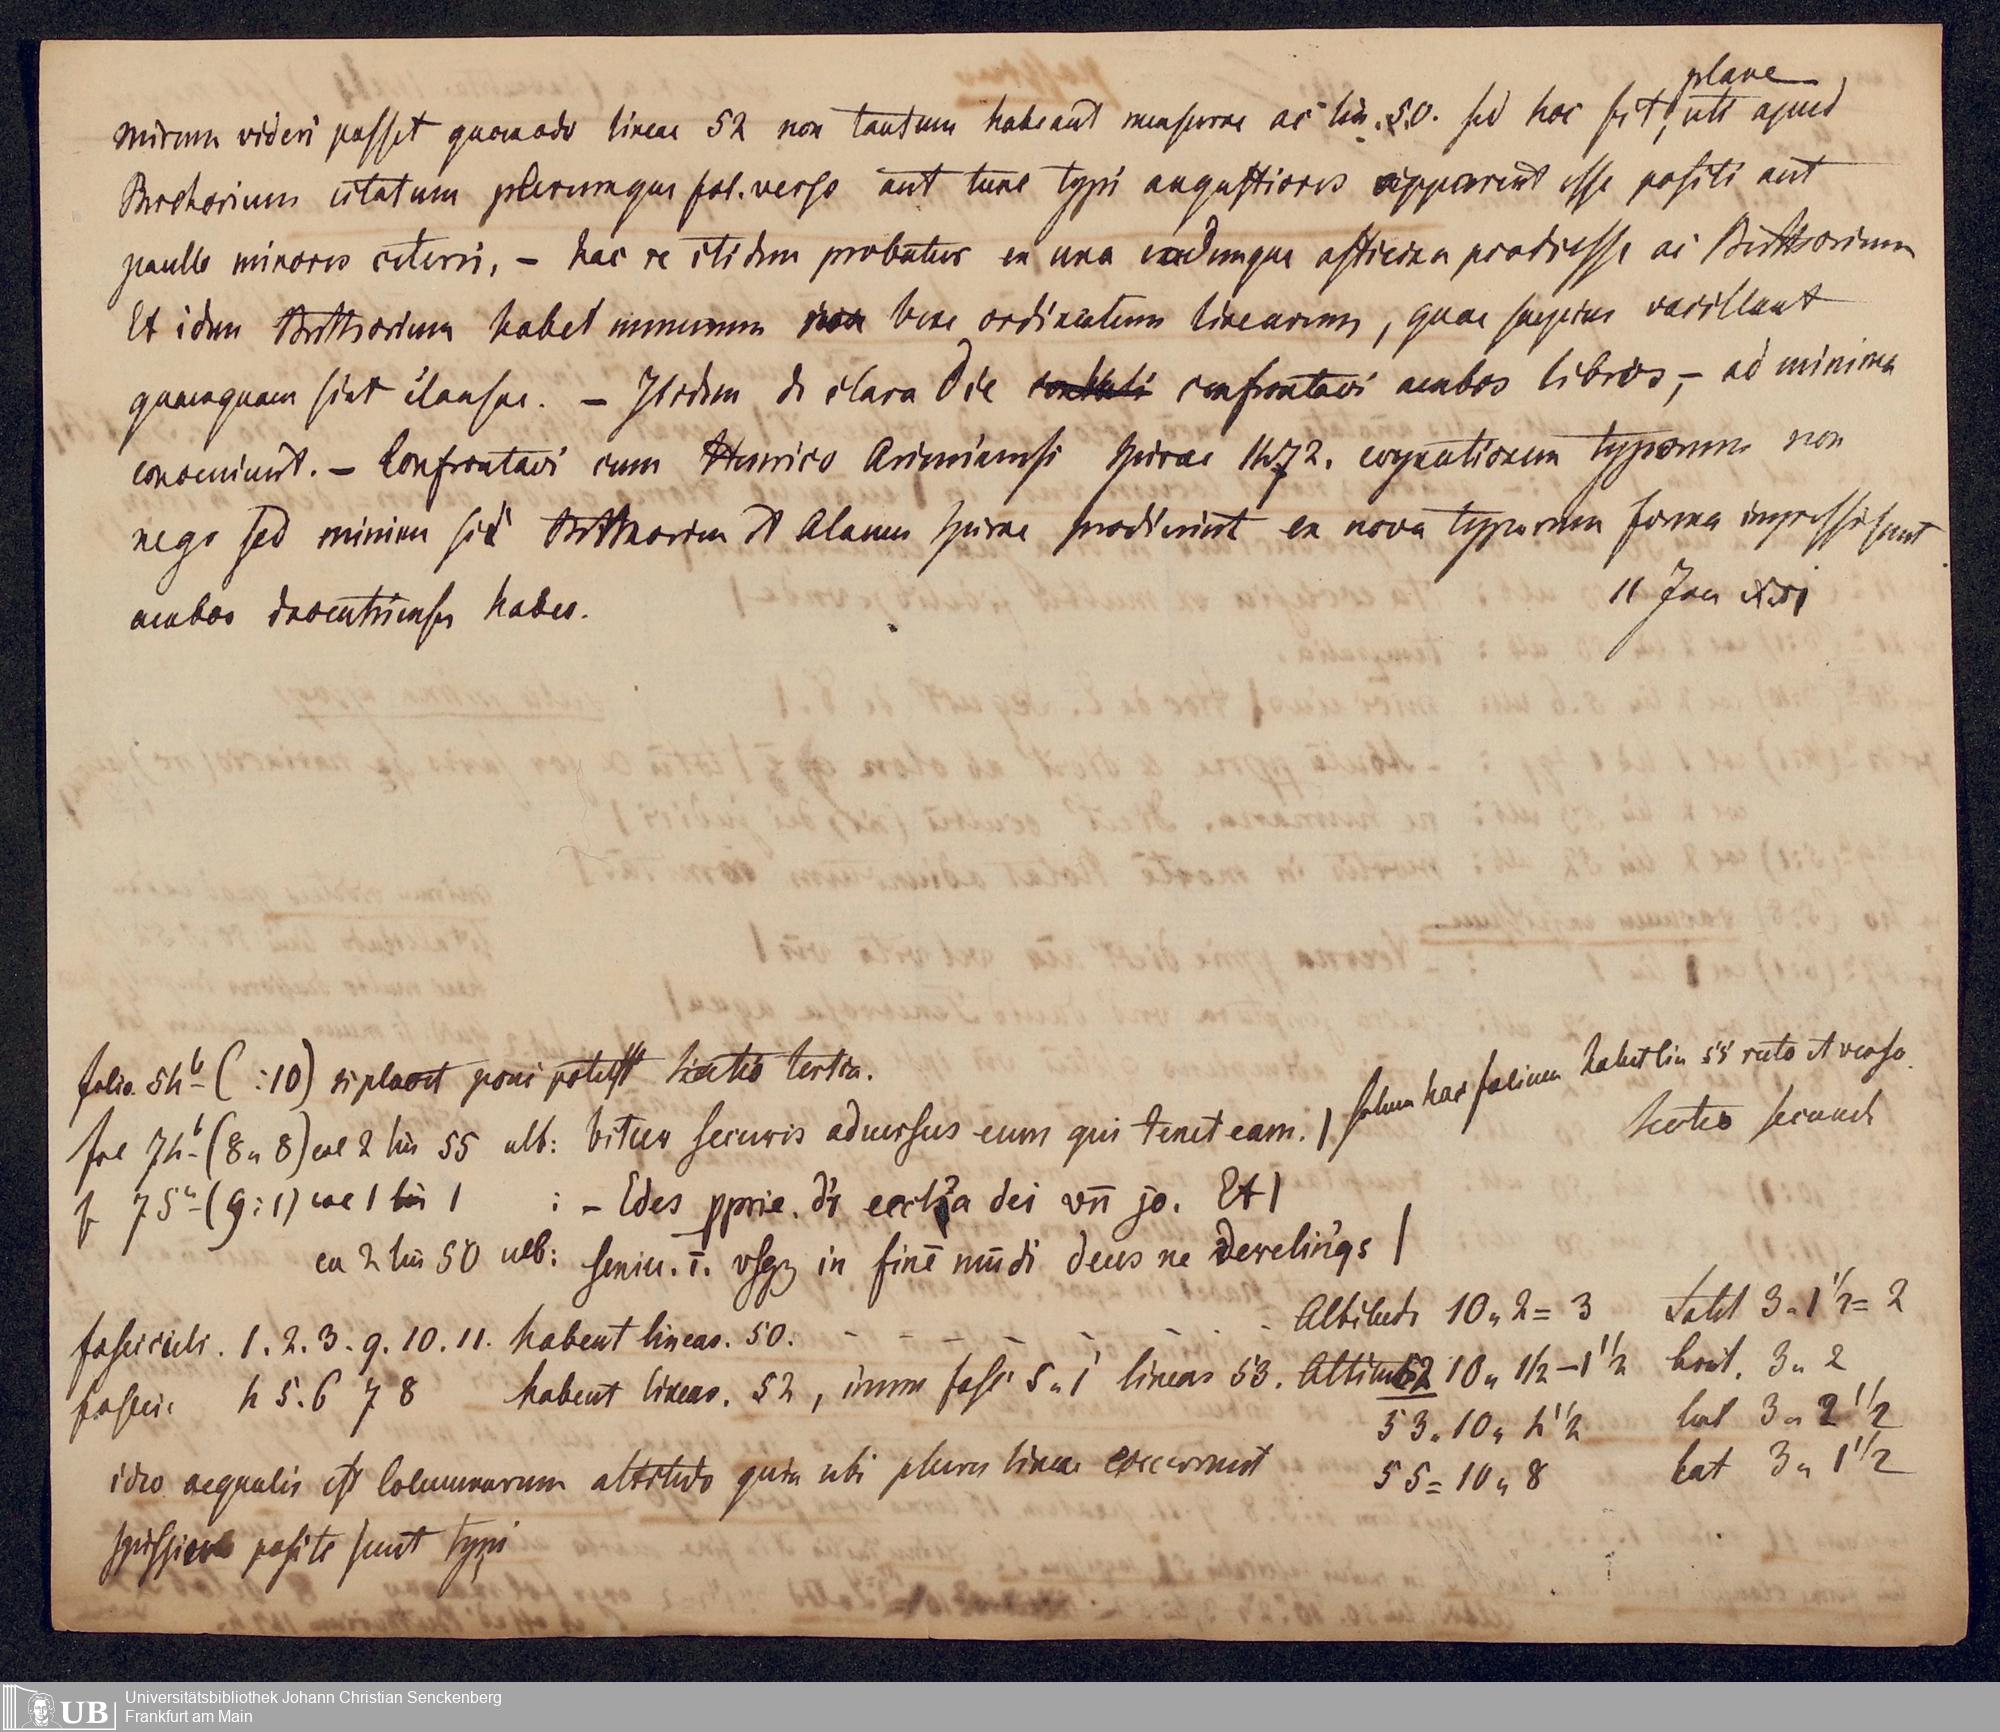 plane
mirum videri posset quomodo lineae 52 non tantum habeant mensurae ac lin. 50. sed hoc fit, uti apud
Berchorium citatum plerumque fol. verso aut tunc typi angustiores apparent esse positi aut
paullo minores ceteris, – hac re itidem probatur ex una eademque officina prodiisse ac Berthorium
Et idem Berthorium habet numerum non bene ordinatum linearum, quae saepius vacillant
quamquam sint clausae. – Itidem de clara die confrontavi ambos libros, – ad minima
conveniunt. – Confrontavi cum Henrico Ariminensi Spirae 1472. cognationem typorum non
nego sed minime si Berthorium et Alanum Spirae prodierint ex nova typorum forma impressi sunt
ambos daventrienses habeo.
11 Jan
folio 54b (:10) si placet poni potest sectio tertia.
solum hoc folium habet lin 55 recto et verso.
fol 74b (8,, 8) col 2 lin 55 ult: bitur securis adversus eum qui tenet eam. |
sectio secunda
f 75a (9:1) col 1 lin 1 : – Edes pprie. dr eccl'ia dei vn̄ jo. Et |
co 2 lin 50 ult: seniu. ī. vsqz in finē mūdi deus ne derelinqs |
fasciculi. 1. 2. 3. 9. 10. 11. habent lineas. 50. – – – – – – – Altitudo 10,, 2 = 3 Latit 3,, 1 1/2 = 2
fascic 4 5. 6 7 8 habent lineas. 52, imm fasc 5,, 1 lineas 53. Altitudo 52 10,, 1/2 – 1 1/2 lat. 3,, 2
53. 10,, 4 1/2 lat 3,, 2 1/2
ideo aequalis est columnarum altitudo quia ubi plures lineae occurrunt
55 = 10,, 8 lat 3,, 1 1/2
spissiores posite sunt typi
Universitätsbibliothek Johann Christian Senckenberg
Frankfurt am Main
UB